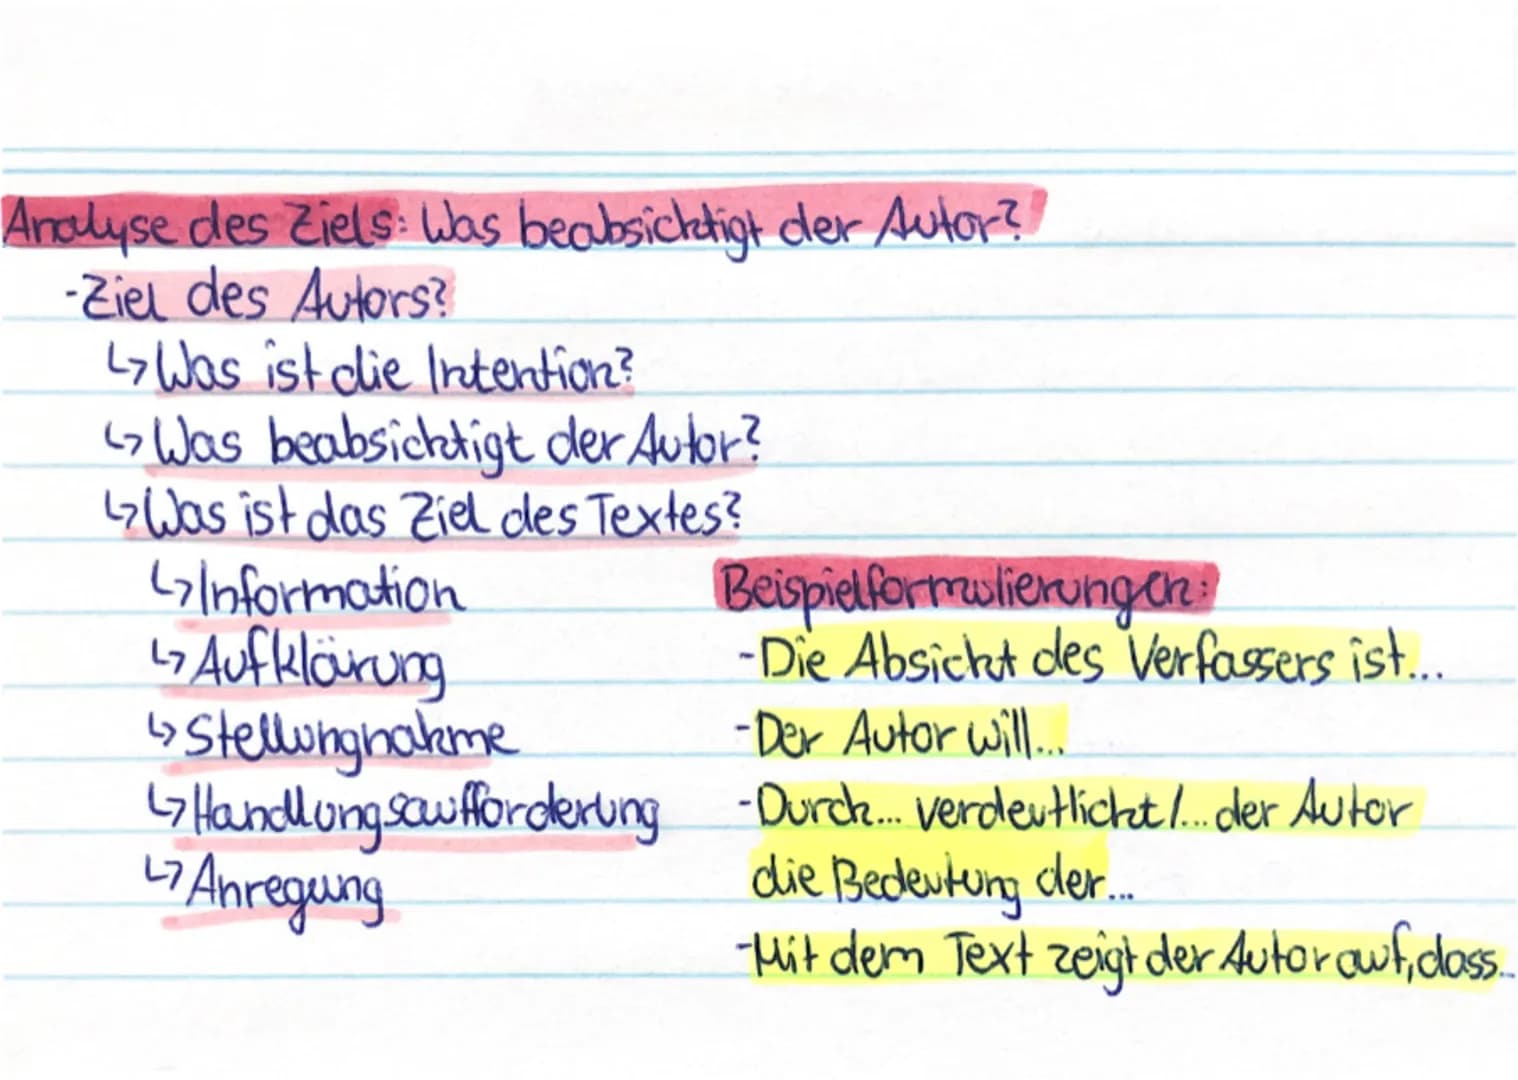 Analyse des Ziels: Was beabsichtigt der Autor?
-Ziel des Autors?
↳Was ist die Intention?
↳Was beabsichtigt der Autor?
↳Was ist das Ziel des Textes?
↳Information
↳Aufklärung
↳Stellungnahme
↳Handlungsaufforderung
↳Anregung
Beispielformulierungen:
-Die Absicht des Verfassers ist...
-Der Autor will...
-Durch... verdeutlicht/... der Autor
die Bedeutung der...
-Mit dem Text zeigt der Autor auf, dass...